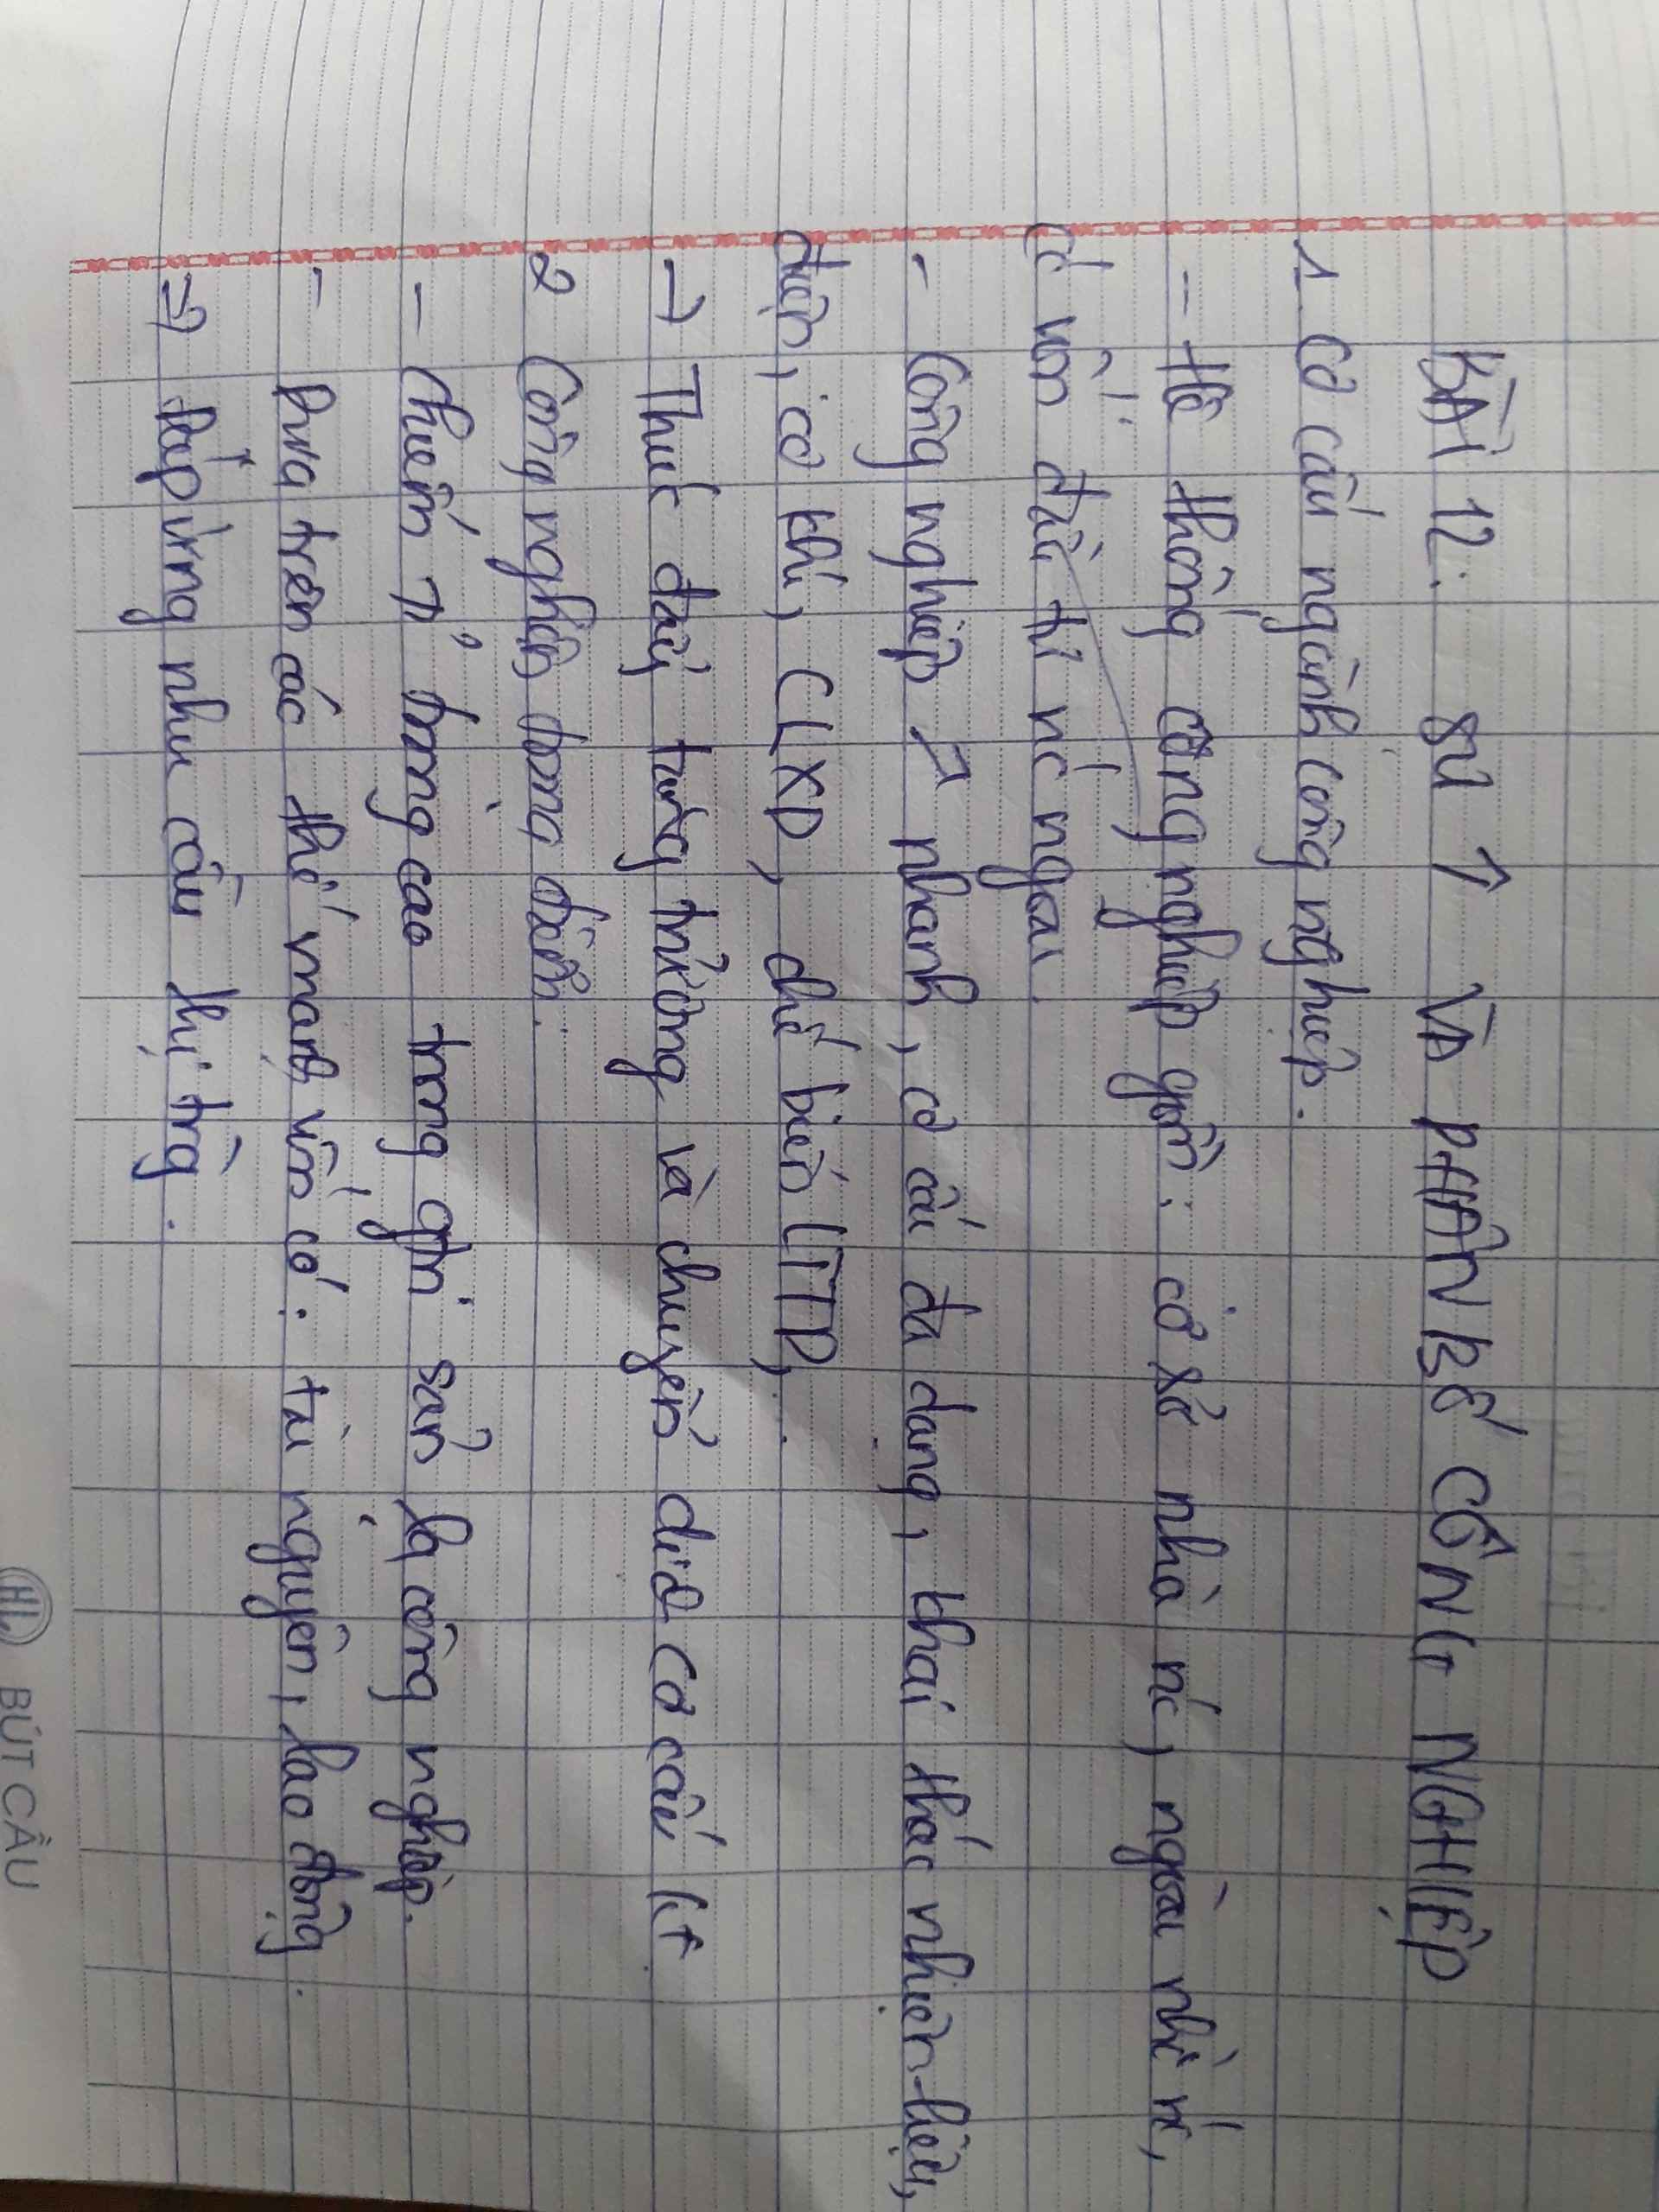 BÀI 12: SỰ ↑ VÀ PHÂN BỐ CÔNG NGHIỆP
1. Cơ cấu ngành công nghiệp.
- Hệ thống công nghiệp gồm: cơ sở nhà nc', ngoài nhà nc',
có vốn đầu tư nc' ngoài.
- Công nghiệp ↗ nhanh, cơ cấu đa dạng, khai thác nhiên liệu,
điện, cơ khí, CLXD, chế biến LTTP, ...
→ Thúc đẩy tăng trưởng và chuyển dịch cơ cấu kt
2 Công nghiệp trọng điểm:
- Chiếm tỉ trọng cao trong sản công nghiệp.
- Dựa trên các thế mạnh vốn có: tài nguyên, lao động.
→ Đáp ứng nhu cầu thị trg.
HL BÚT CẦU